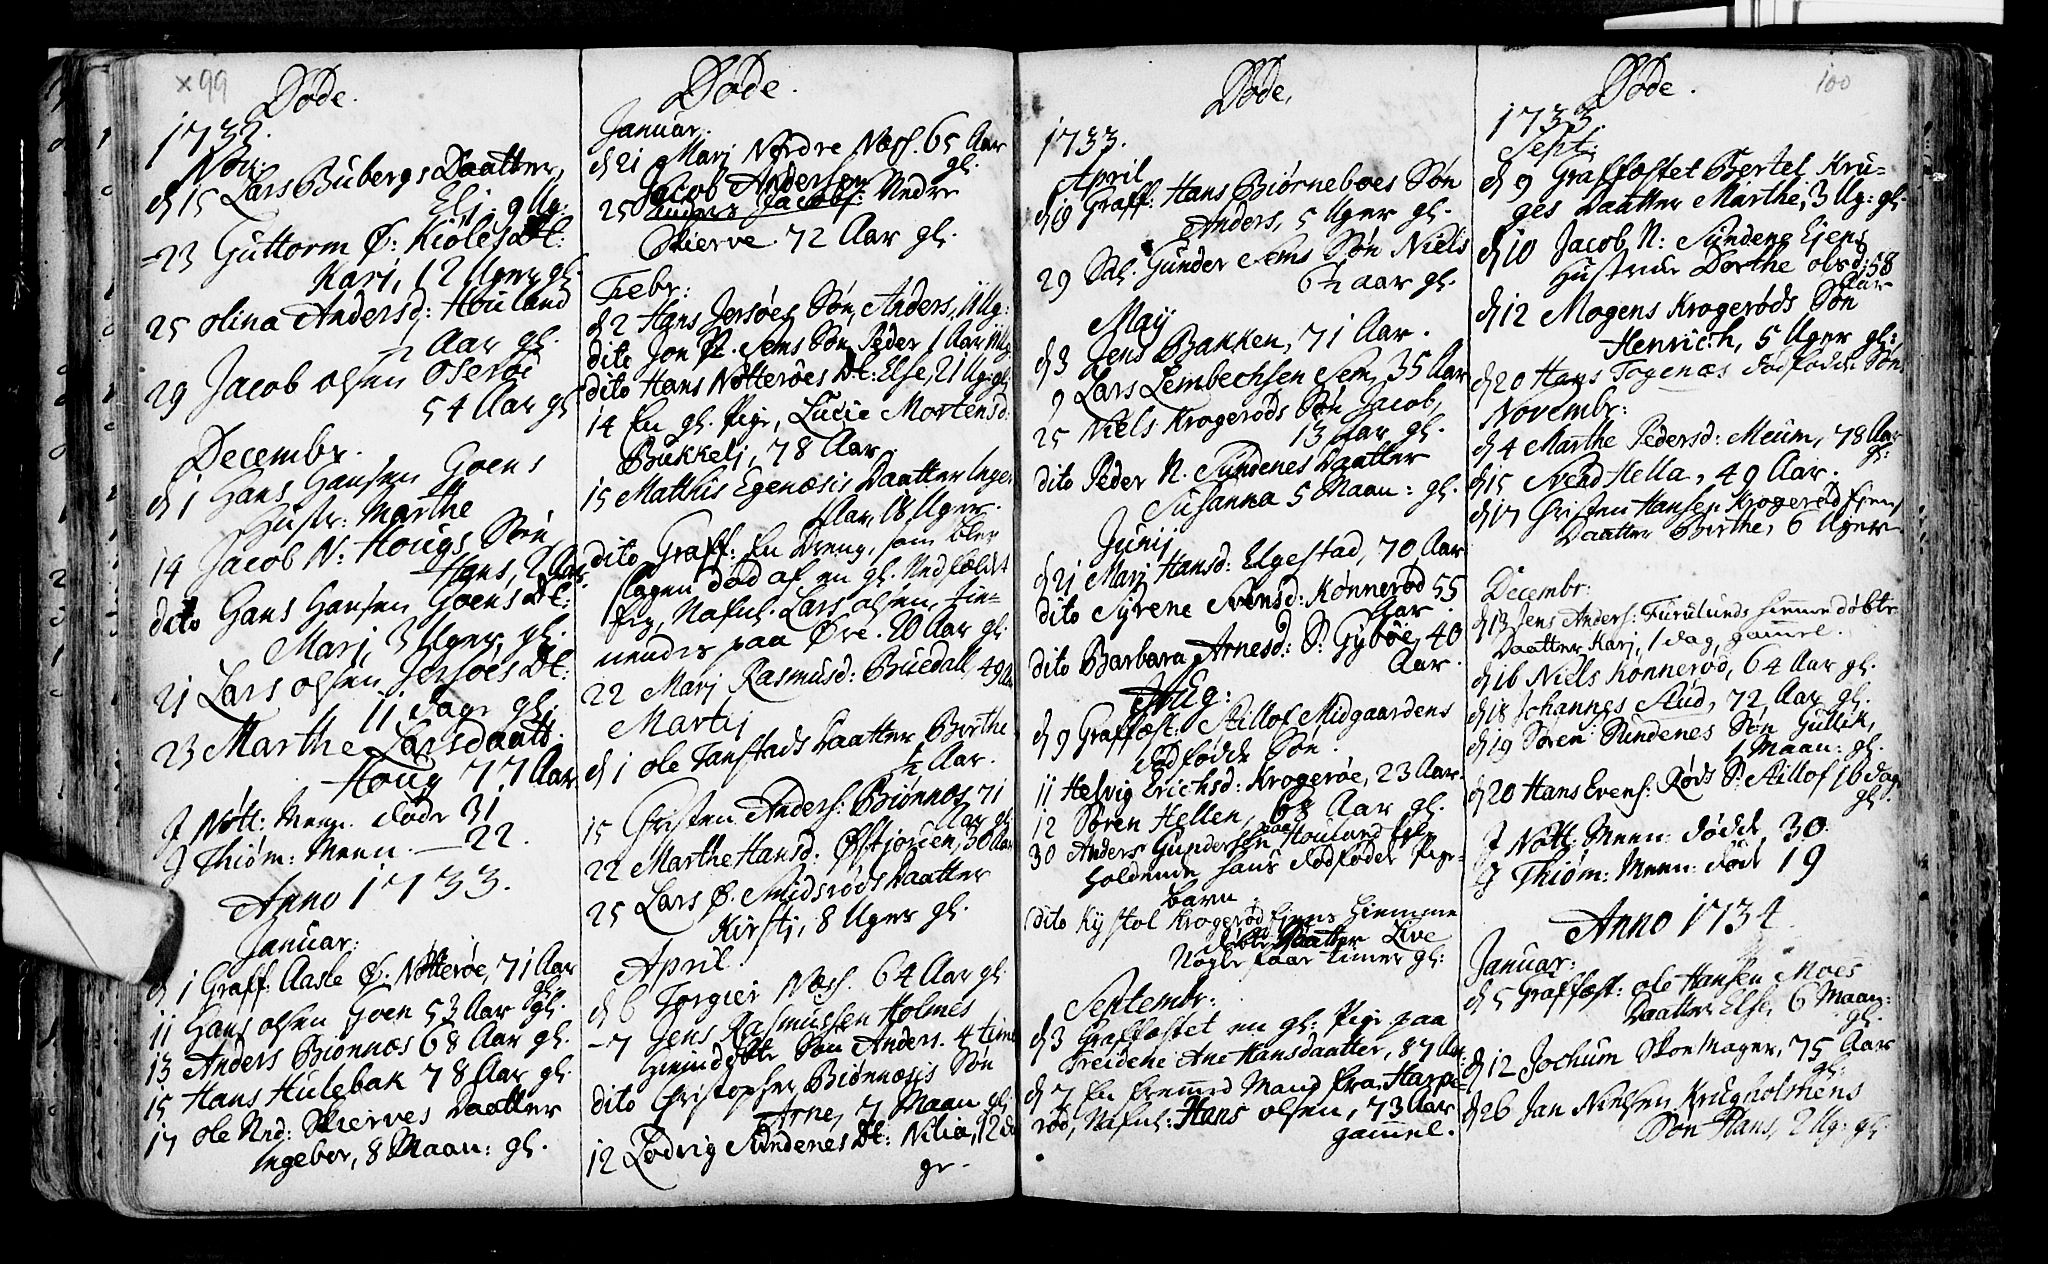 × 99
Døde.
1732.
Nov:
d 15 Lars Bubergs Daatter,
Eli: 9 Ug:
- 23 Guttorm Ø: Kiøles Dt:
Kari, 12 Uger gl.
25 Olina Andersd: Houland
½ Aar gl.
29 Jacob Olsen Oserøe
54 Aar gl
Decembr.
d 1 Hans Hansen Goens
Hustr: Marthe
14 Jacob N: Hougs Søn,
Hans, 2 Aar
dito Hans Hansen Goens Dt:
Marj, 3 Uger, gl.
21 Lars Olsen Jersøes Dt:
11 Dage gl.
23 Marthe Larsdaatt.
Houg 77 Aar
J Nøtt: Meen. døde 31
J Thiøm: Meen. — 22.
Anno 1733.
Januar:
d 1 Graff: Aasle Ø: Nøtterøe, 71 Aar
gl.
11 Hans Olsen Goen 53 Aar gl.
13 Anders Biønnæs 68 Aar gl.
15 Hans Hulebak 78 Aar gl.
17 Ole Ned: Skierves Daatter
Ingebor, 8 Maan: gl.
Døde.
Januar.
d 21 Marj Nordre Næss. 65 Aar
gl.
Jacob Andersen
25 Anders Jacobs: Nedre
Skierve. 72 Aar gl.
Febr:
d 2 Hans Jersøes Søn, Anders, 11 Ug:
dito Jon Ø. Sems Søn Peder 1 Aar 11 Ug.
dito Hans Nøtterøes Dt: Else, 21 Ug: gl:
14 En gl. Pige, Lucie Mortensd:
Bukkelj, 78 Aar.
15 Matthis Egenæsis Daatter Inger
1 Aar 18 Uger.
dito Graff: En Dreng, som blev
slagen død af en gl. Nedfældt
Feg, Nafnl. Lars Olsen, tie-
nendes paa Øre. 20 Aar gl
22 Marj Rasmusd: Buedall 49 Aar
Martij
d 1 Ole Tanstads Daatter Berthe
½ Aar.
15 Christen Anders: Biønnæs 71
Aar gl.
22 Marthe Hansd: Østjorden, 30 Aar
25 Lars Ø. Smidsrøds Daatter
Kirstj, 8 Uger gl.
April.
d 6 Torgier Næss. 64 Aar gl.
- 7 Jens Rasmussen Holmes
hiemdøbte Søn Anders. 4 time
dito Christopher Biønnæsis Søn
Arne, 7 Maan gl.
12 Lodvig Sundenes Dt: Nilia, 12 da
ge.
Døde.
1733.
April
d 19 Graff: Hans Biørneboes Søn
Anders, 5 Uger gl.
29 Sal. Gunder Sems Søn Niels
6½ aar gl.
May
d 3 Jens Bakken, 71 Aar.
9 Lars Lembechsen Sem, 35 Aar
25 Niels Krogerøds Søn Jacob,
13 Aar gl.
dito Peder N. Sundenes Daatter
Susanna 5 Maan: gl.
Junij
d 21 Marj Hansd: Elgestad, 70 Aar
dito Syrene Svensd: Kønnerød 55
Aar.
dito Barbara Arnesd: S. Gybøe, 40
Aar.
Aug:
d 9 Graffæst: Stillof Midgaardens
dødfødde Søn.
11 Helvig Erichsd: Krogerøe, 23 Aar.
12 Søren Hellen, 68 Aar gl.
30 Anders Gundersen Houland
holdende hans dødfødde Pige-
barn.
dito Kystol Krogerød Ejens hiemme
døbte Daatter Live
Nogle faar timer gl:
Septembr:
d 3 Graffæstet en gl: Pige paa
Treidene Ane Hansdaatter, 87 Aar.
d 7 En fremmed Mand fra Harpe-
rød, Nafnl: Hans Olsen, 73 Aar
gammel.
100
Døde.
1733.
Sept:
d 9 Graffæstet Bertel Kru-
ges Daatter Marthe, 3 Ug: gl.
d 10 Jacob N: Sundene Ejens
Hustrue Dorthe Olsd: 58
Aar
d 12 Mogens Krogerøds Søn
Henrich, 5 Uger gl:
d 20 Hans Togenæs dødfødde Søn.
Novembr:
d 4 Marthe Pedersd: Meum, 78 Aar
gl:
d 15 Svend Hella, 49 Aar.
d 17 Christen Hansen Krogerød Ejens
Daatter Birthe, 6 Uger
Decembr:
d 13 Jens Anders: Furulunds hiemmedøbte
Daatter Karj, 1 dag gammel.
d 16 Niels Kønnerød, 64 Aar gl.
d 18 Johannes Stud, 72 Aar gl.
d 19 Søren Sundenes Søn Gullik,
1 Maan: gl.
d 20 Hans Evens: Røds S. Stillof 16 dage
gl.
J Nøtt: Meen: Dødde 30.
J Thiøm: Meen: Døde 19
Anno 1734.
Januar:
d 5 Graffæst: Ole Hansen Moes
Daatter Else, 6 Maan:
gl.
d 12 Jochum Skoemager, 75 Aar
gl:
d 26 Jan Nielsen Krugholmens
Søn Hans, 2 Ug: gl: